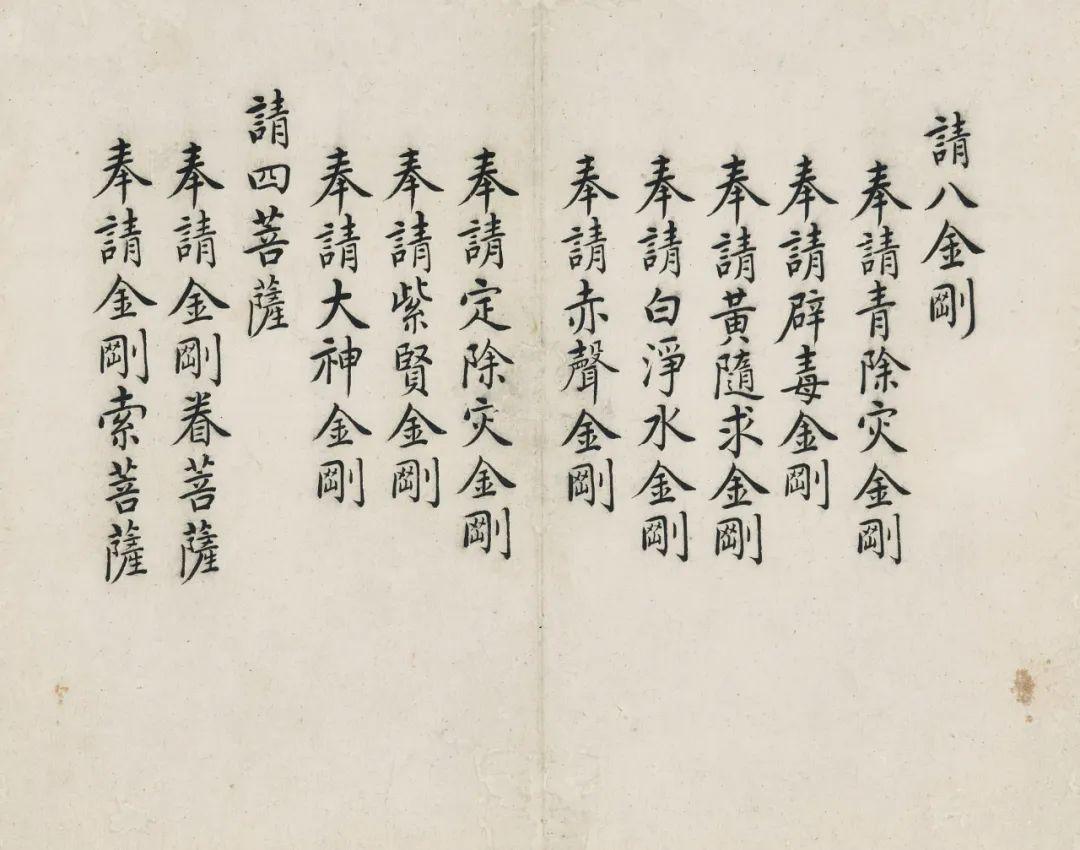 請八金剛
奉請青除灾金剛
奉請辟毒金剛
奉請黃隨求金剛
奉請白淨水金剛
奉請赤聲金剛
奉請定除灾金剛
奉請紫賢金剛
奉請大神金剛
請四菩薩
奉請金剛眷菩薩
奉請金剛索菩薩